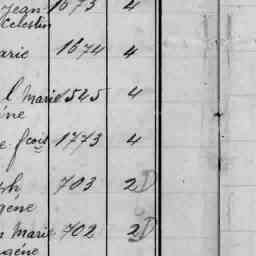 Jean- 1673 4
Celestin
arie 1674 4
l Marie 545 4
éne
e fcois 1773 4
ph 703 2 D
géne
n Marie 702 2 D
ugéne